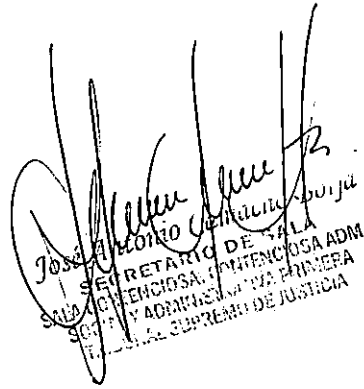 José Antonio
SECRETARIO DE SALA
SALA CONTENCIOSA, CONTENCIOSA ADM
SOCIAL Y ADMINISTRATIVA PRIMERA
TRIBUNAL SUPREMO DE JUSTICIA